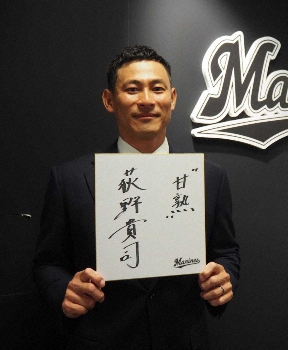 Ma
"甘熟"
荻野貴司
Marines